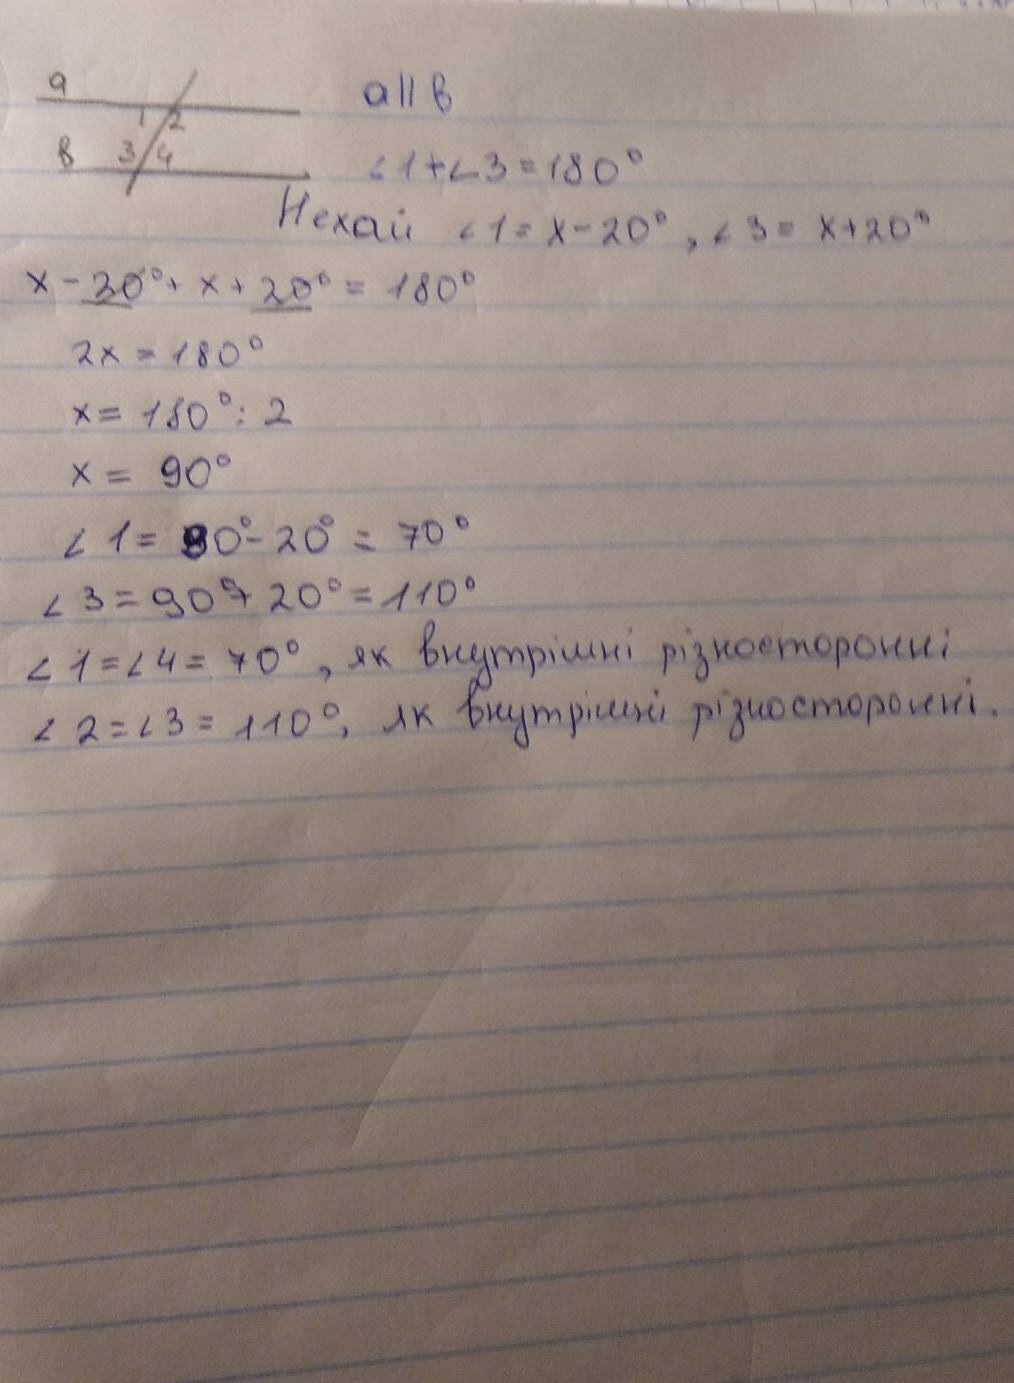 a
a || в
1 2
в 3 4
∠1+∠3=180°
Нехай ∠1= x-20°, ∠3= x+20°
x-20°+ x+20°=180°
2x=180°
x= 180°: 2
x= 90°
∠1= 90°-20°= 70°
∠3=90°+20°=110°
∠1=∠4= 70°, як внутрішні різносторонні
∠2=∠3=110°, як внутрішні різносторонні.